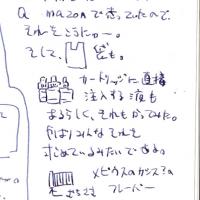 amazonで売ってたので
それをこうたわー。
そして、
も。
カートリッジに直接
注入する液も
あるらしく、それもかってみた。
やはりみんなそれを
求めているみたいですよ。
メビウスの
フレーバー